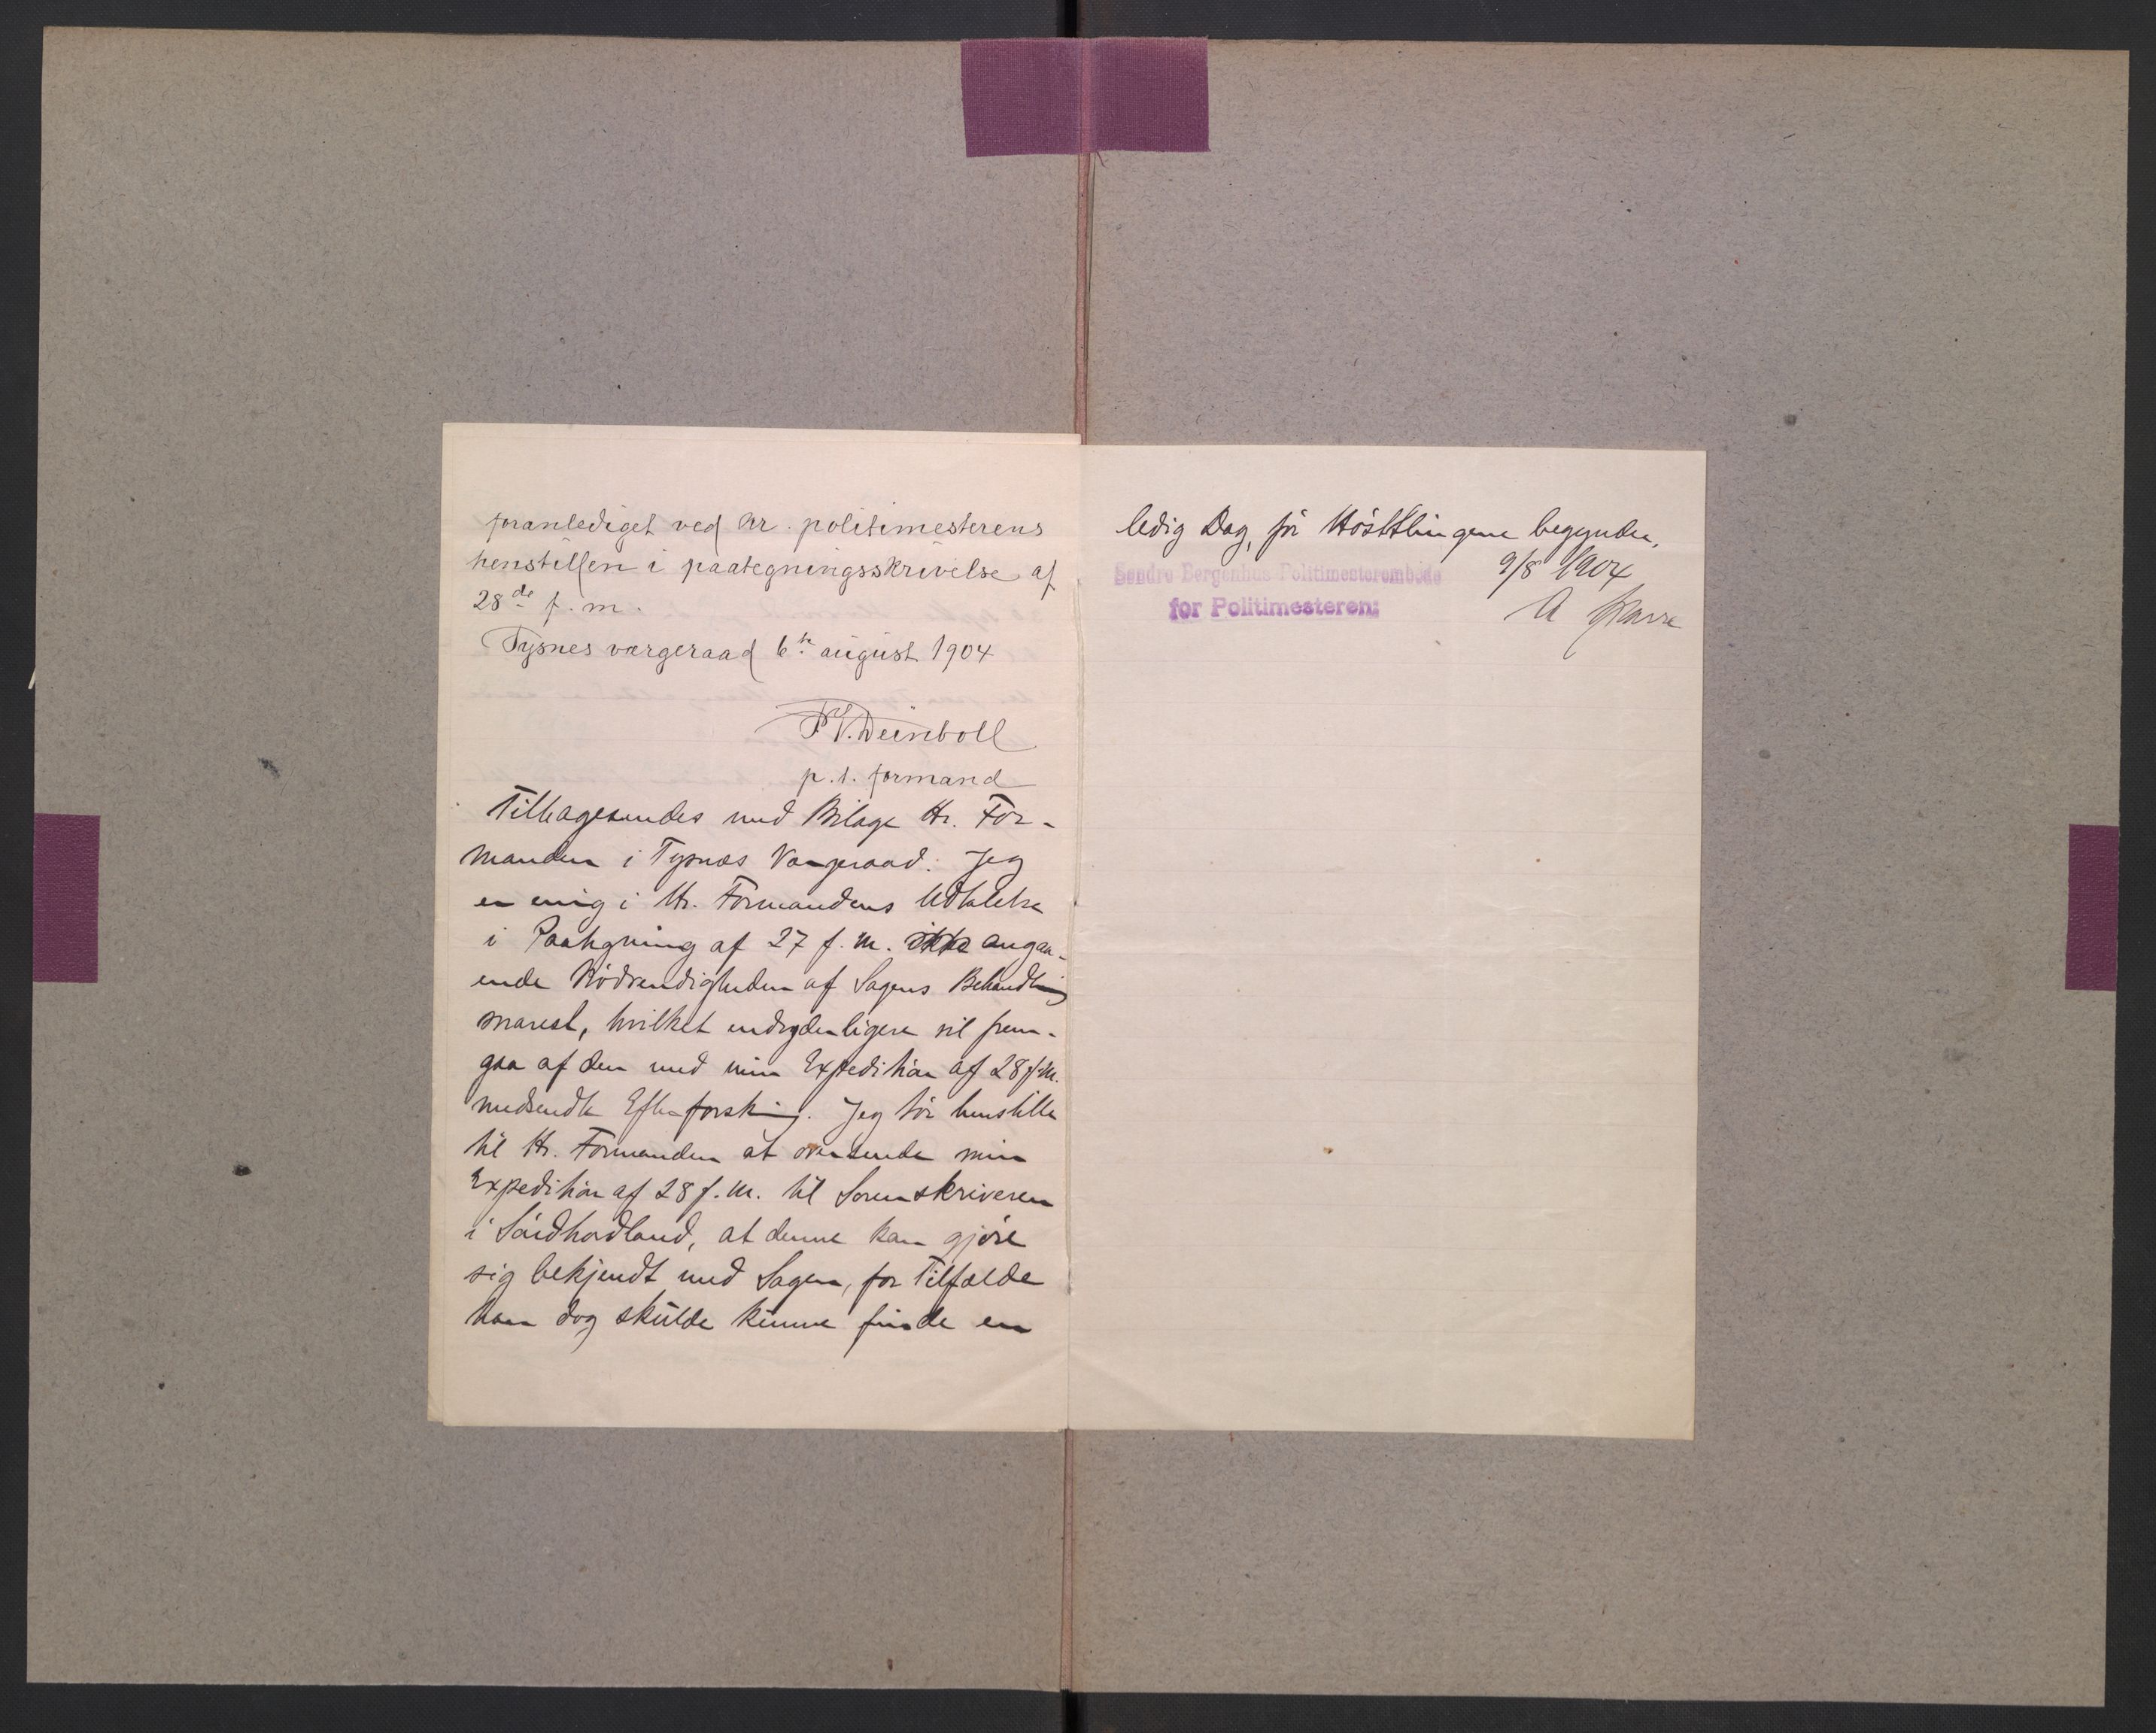 foranlediget ved hr. politimesterens
henstillen i paategningsskrivelse af
28de f. m.
Tysnes vergeraad 6te august 1904
P V. Deinboll
p. t. formand
Tilbagesendes med Bilage Hr. For-
manden i Tysnæs Vergeraad. Jeg
er enig i Hr. Formandens Udtalelse
i Paategning af 27 f. M. angaa-
ende Nödvendigheden af Sagens Behandling
snarest, hvilket end ydeligere vil frem-
gaa af den med min Expedition af 28 f. M.
medsendte Efterforskning. Jeg tör henstille
til Hr. Formanden at oversende min
Expedition af 28 f. M. til Sorenskriveren
i Söndhordland, at denne kan gjöre
sig bekjendt med Sagen, for Tilfælde
han dog skulde kunne finde en
ledig Dag, för Hösttingene begynder.
Søndre Bergenhus Politimesterembede 9/8 1904
for Politimesteren:
A